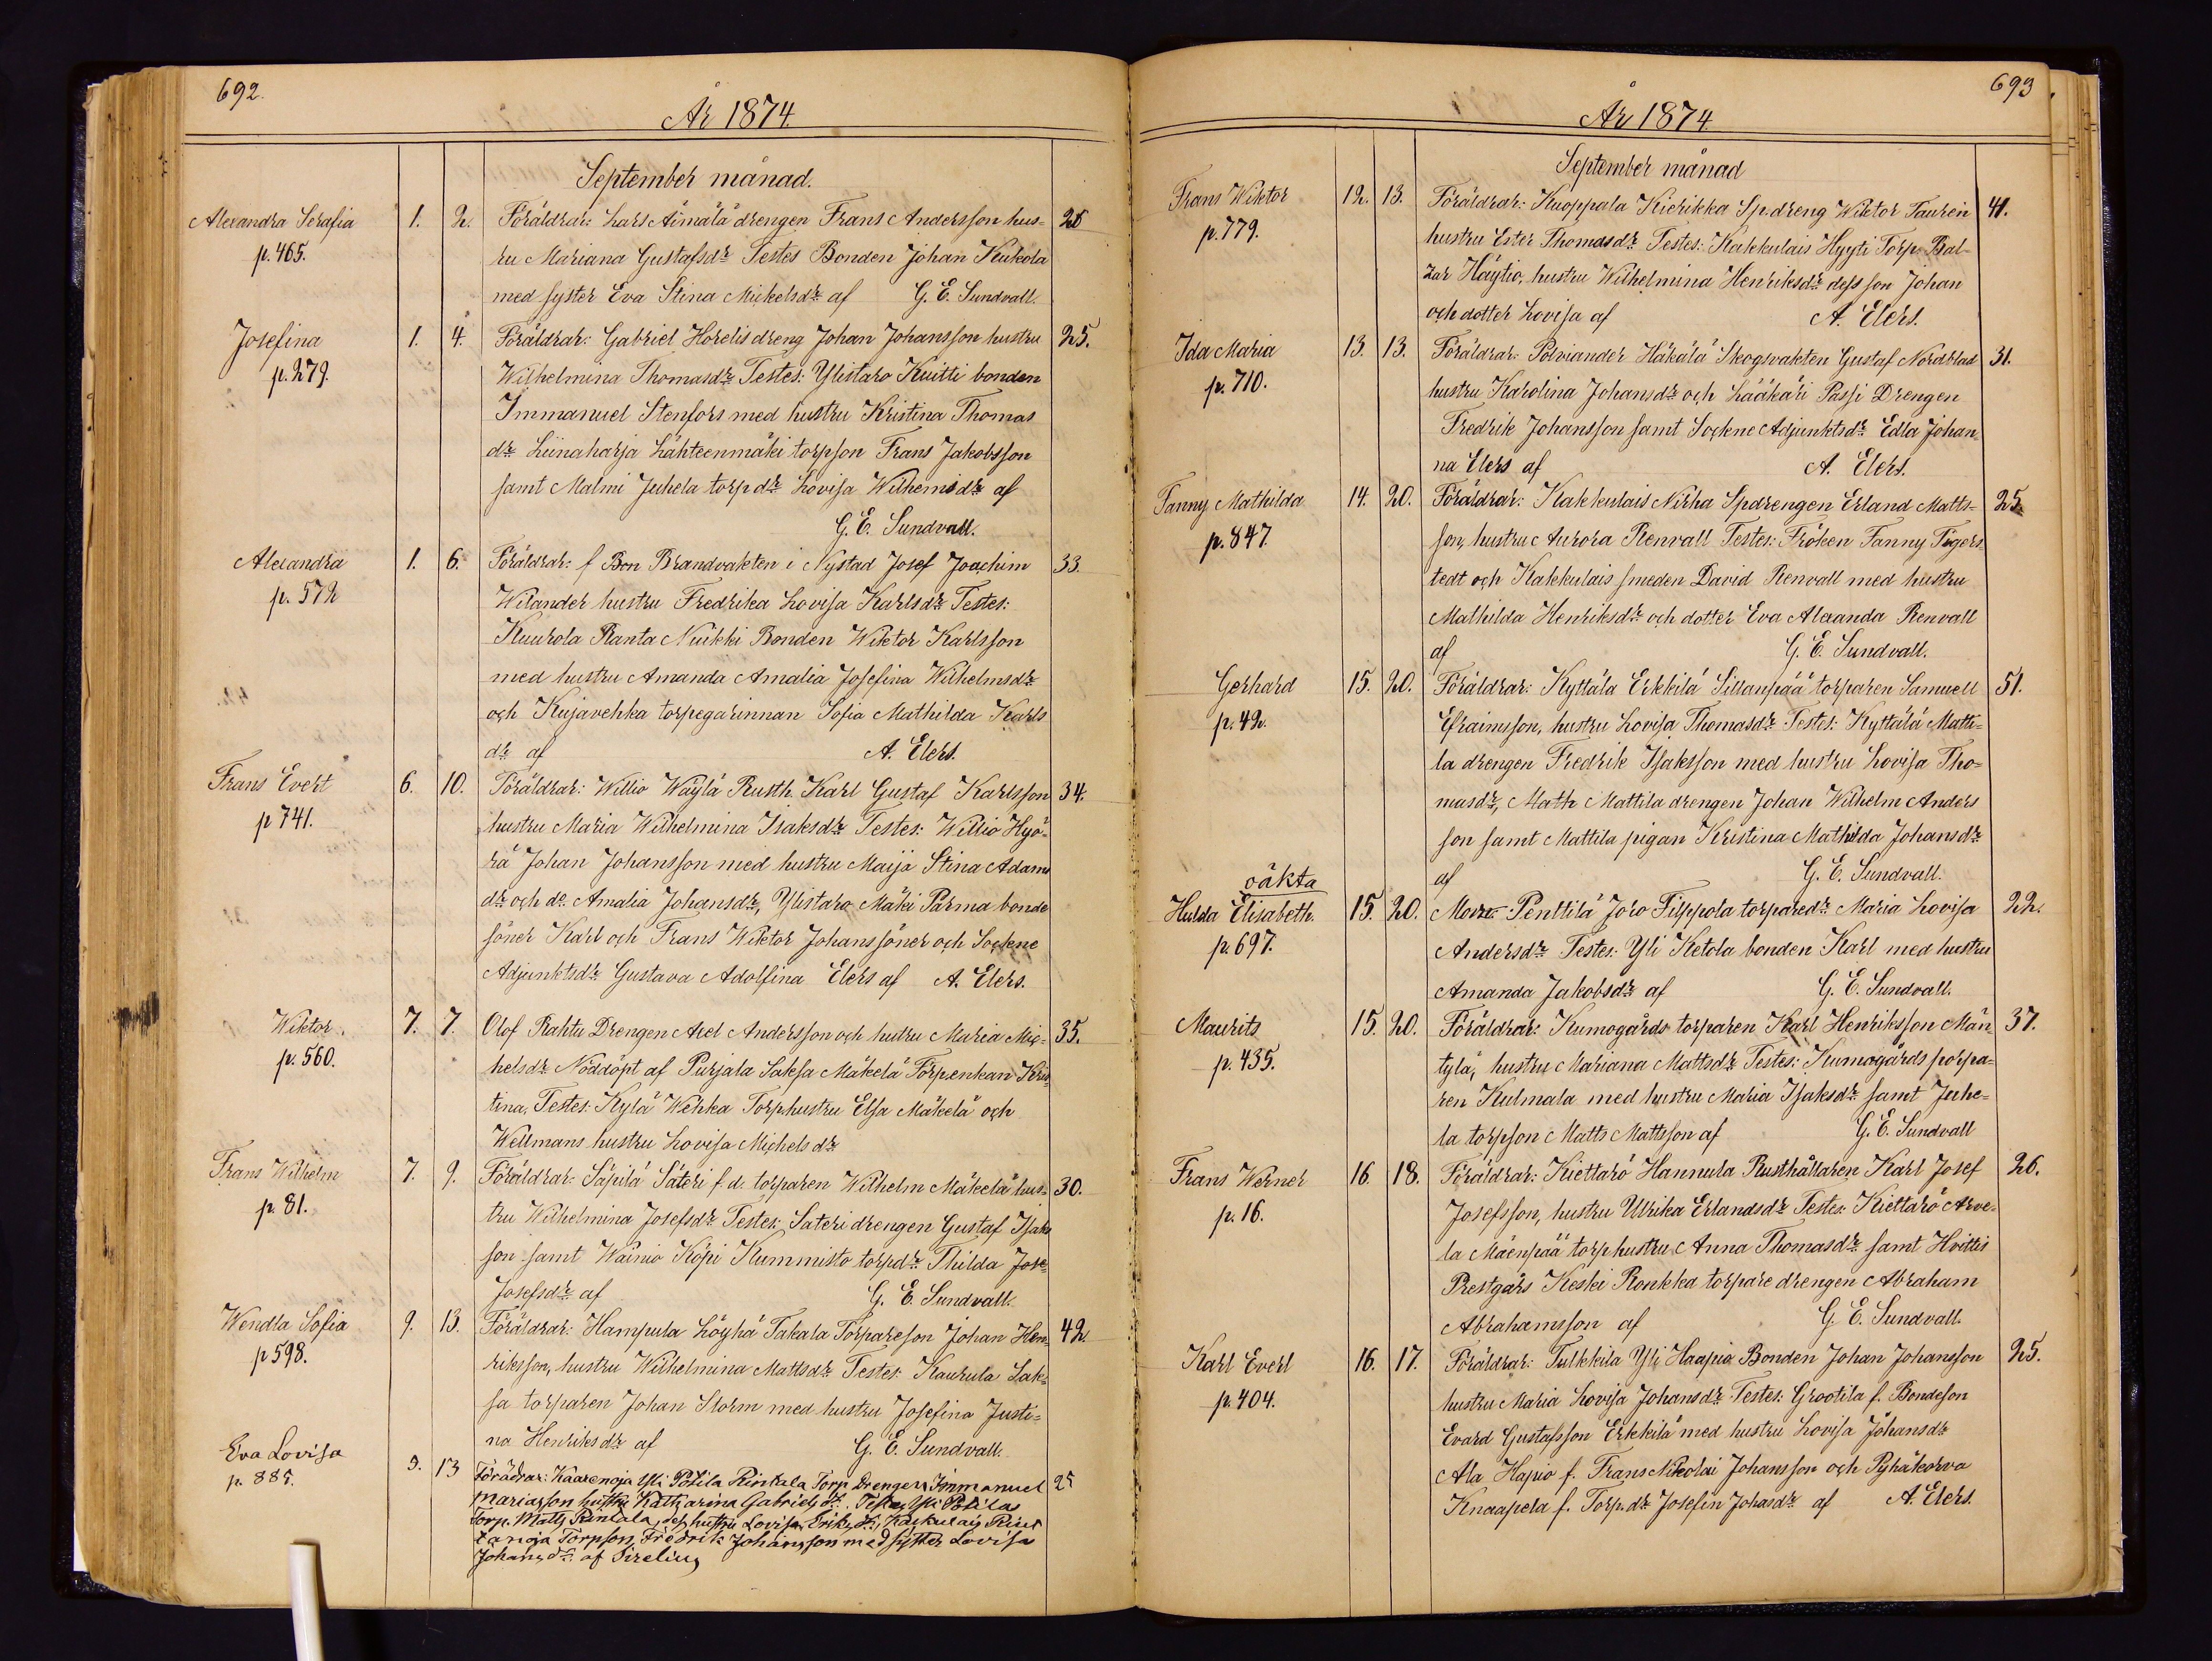 692.
År 1874.
September månad.
Alexandra Serafia 1. 2. Föräldrar: Lars Äimälä drengen Frans Andersson hus- 28
p. 465. ru Mariana Gustafsdr Testes Bonden Johan Kukola
med syster Eva Stina Mickelsdr af G. E. Sundvall.
Josefina 1. 4. Föräldrar: Gabriel Horelis dreng Johan Johansson hustru 25.
p. 279. Wilhelmina Thomasdr Testes: Ylistaro Kuitti bonden
Immanuel Stenfors med hustru Kristina Thomas
dr Liinaharja Lähteenmäki torpson Frans Jakobsson
samt Malmi Juhela torpdr Lovisa Wilhemsdr af
G. E. Sundvall.
Alexandra 1. 6. Föräldrar: f Bon Brandvakten i Nystad Josef Joachim 33.
p. 572 Wilander hustru Fredrika Lovisa Karlsdr Testes:
Kuurola Ranta Nuikki Bonden Wiktor Karlsson
med hustru Amanda Amalia Josefina Wilhelmsdr
och Kujavehka torpegarinnan Sofia Mathilda Karls
dr af A. Elers.
Frans Evert 6. 10. Föräldrar: Willio Wäylä Rusth. Karl Gustaf Karlsson 34.
p 741. hustru Maria Wilhelmina Isaksdr Testes: Willio Hyö-
rä Johan Johansson med hustru Maija Stina Adams
dr och do Amalia Johansdr, Ylistaro Mäki Parma bonde
söner Karl och Frans Wiktor Johanssöner och Sockne
Adjunktsdr Gustava Adolfina Elers af A. Elers.
Wiktor. 7. 7. Olof Rahtu Drengen Axel Andersson och hutru Maria Mic- 35.
p. 560. helsdr Nöddöpt af Purjala Saksa Mäkelä Torp.enkan Kris
tina, Testes: Kylä Wehka Torphustru Elsa Mäkelä och
Wellmans hustru Lovisa Michelsdr
Frans Wilhelm 7. 9. Föräldrar: Säpilä Säteri f. d. torparen Wilhelm Mäkelä hus- 30.
p. 81. tru Wilhelmina Josefsdr Testes: Sateri drengen Gustaf Isaks
son samt Wainio Köpi Kummisto torpdr Thilda Jose-
Josefsdr af G. E. Sundvall.
Wendla Sofia 9. 13. Föräldrar: Hampula Löyhä Takala Torpareson Johan Hen- 42
p 598. riksson, hustru Wilhelmina Mattsdr Testes: Kaurula Sak-
sa torparen Johan Storm med hustru Josefina Justi-
na Henriksdr af G. E. Sundvall.
Eva Lovisa 9. 13 Förädrar: Kaarenoja Yli Potila Rinkala Torp Drengen Immanuel 25
p. 885. Mariasson hustru Katharina Gabrielsdr. Testes Yli Potilas
Torp. Matts Rintala, dess hustru Lovisa Eriksdr, Kaskulais Rint
tanoja Torpson, Fredrik Johansson med syster Lovisa
Johansdr af Sirelius
693
År 1874.
September månad
Frans Wiktor 12. 13. Föräldrar: Kuoppala Kierikka Sp.dreng Wiktor Tauren 41.
p. 779. hustru Ester Thomasdr Testes: Kakkulais Hyyti Torp. Bal-
zar Häytiö, hustru Wilhelmina Henriksdr dess son Johan
och dotter Lovisa af A. Elers.
Ida Maria 13. 13. Föräldrar: Polviander Häkälä Skogsvakten Gustaf Nordblad 31.
p. 710. hustru Karolina Johansdr och Lääkäri Passi Drengen
Fredrik Johansson samt Sockne Adjunktsdr Edla Johan-
na Elers af A. Elers.
Fanny Mathilda 14. 20. Föräldrar: Kakkulais Nirha Spdrengen Erland Matts- 25.
p. 847. son, hustru Aurora Renvall Testes: Fröken Fanny Tigers
tedt och Kakkulais smeden David Renvall med hustru
Mathilda Henriksdr och dotter Eva Alexanda Renvall
af G. E. Sundvall.
Gerhard 15. 20. Föräldrar: Kyttälä Erkkilä Sillanpää torparen Samuell 51.
p. 42. Efraimsson, hustru Lovisa Thomasdr Testes: Kyttälä Matti-
la drengen Fredrik Isaksson med hustru Lovisa Tho-
masdr, Math Mattila drengen Johan Wilhelm Anders
son samt Mattila pigan Kristina Mathilda Johansdr
af G. E. Sundvall.
oäkta
Hulda Elisabeth. 15. 20. Modr: Penttilä Joro Filppola torparedr Maria Lovisa 22.
p. 697. Andersdr Testes: Yli Ketola bonden Karl med hustru
Amanda Jakobsdr af G. E. Sundvall.
Maurits 15. 20. Föräldrar: Kumogårds torparen Karl Henriksson Män- 37.
p. 435. tylä, hustru Mariana Mattsdr Testes: Kumogårds porpa-
ren Kulmala med hustru Maria Isaksdr samt Juhe-
la torpson Matts Mattsson af G. E. Sundvall
Frans Werner 16. 18. Föräldrar: Kiettarö Hannula Rusthållaren Karl Josef 26.
p. 16. Josefsson, hustru Ulrika Erlandsdr Testes: Kiettarö Arve-
la Mäenpää torphustru, Anna Thomasdr samt Hvittis
Prestgårs Keski Ronkka torpare drengen Abraham
Abrahamsson af G. E. Sundvall.
Karl Evert 16. 17. Föräldrar: Tulkkila Yli Haapio Bonden Johan Johansson 25.
p. 404. hustru Maria Lovisa Johansdr Testes: Grootila f. Bondeson
Evard Gustafsson Erkkilä med hustru Lovisa Johansdr
Ala Hapio f. Frans Nikolai Johansson och Pyhäkorva
Knaapela f. Torp.dr Josefin Johasdr af A. Elers.